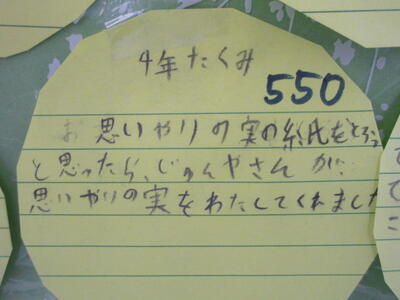 4年たくみ
550
お思いやりの実の紙をとろう
と思ったら、じゅんやさんが、
思いやりの実をわたしてくれました